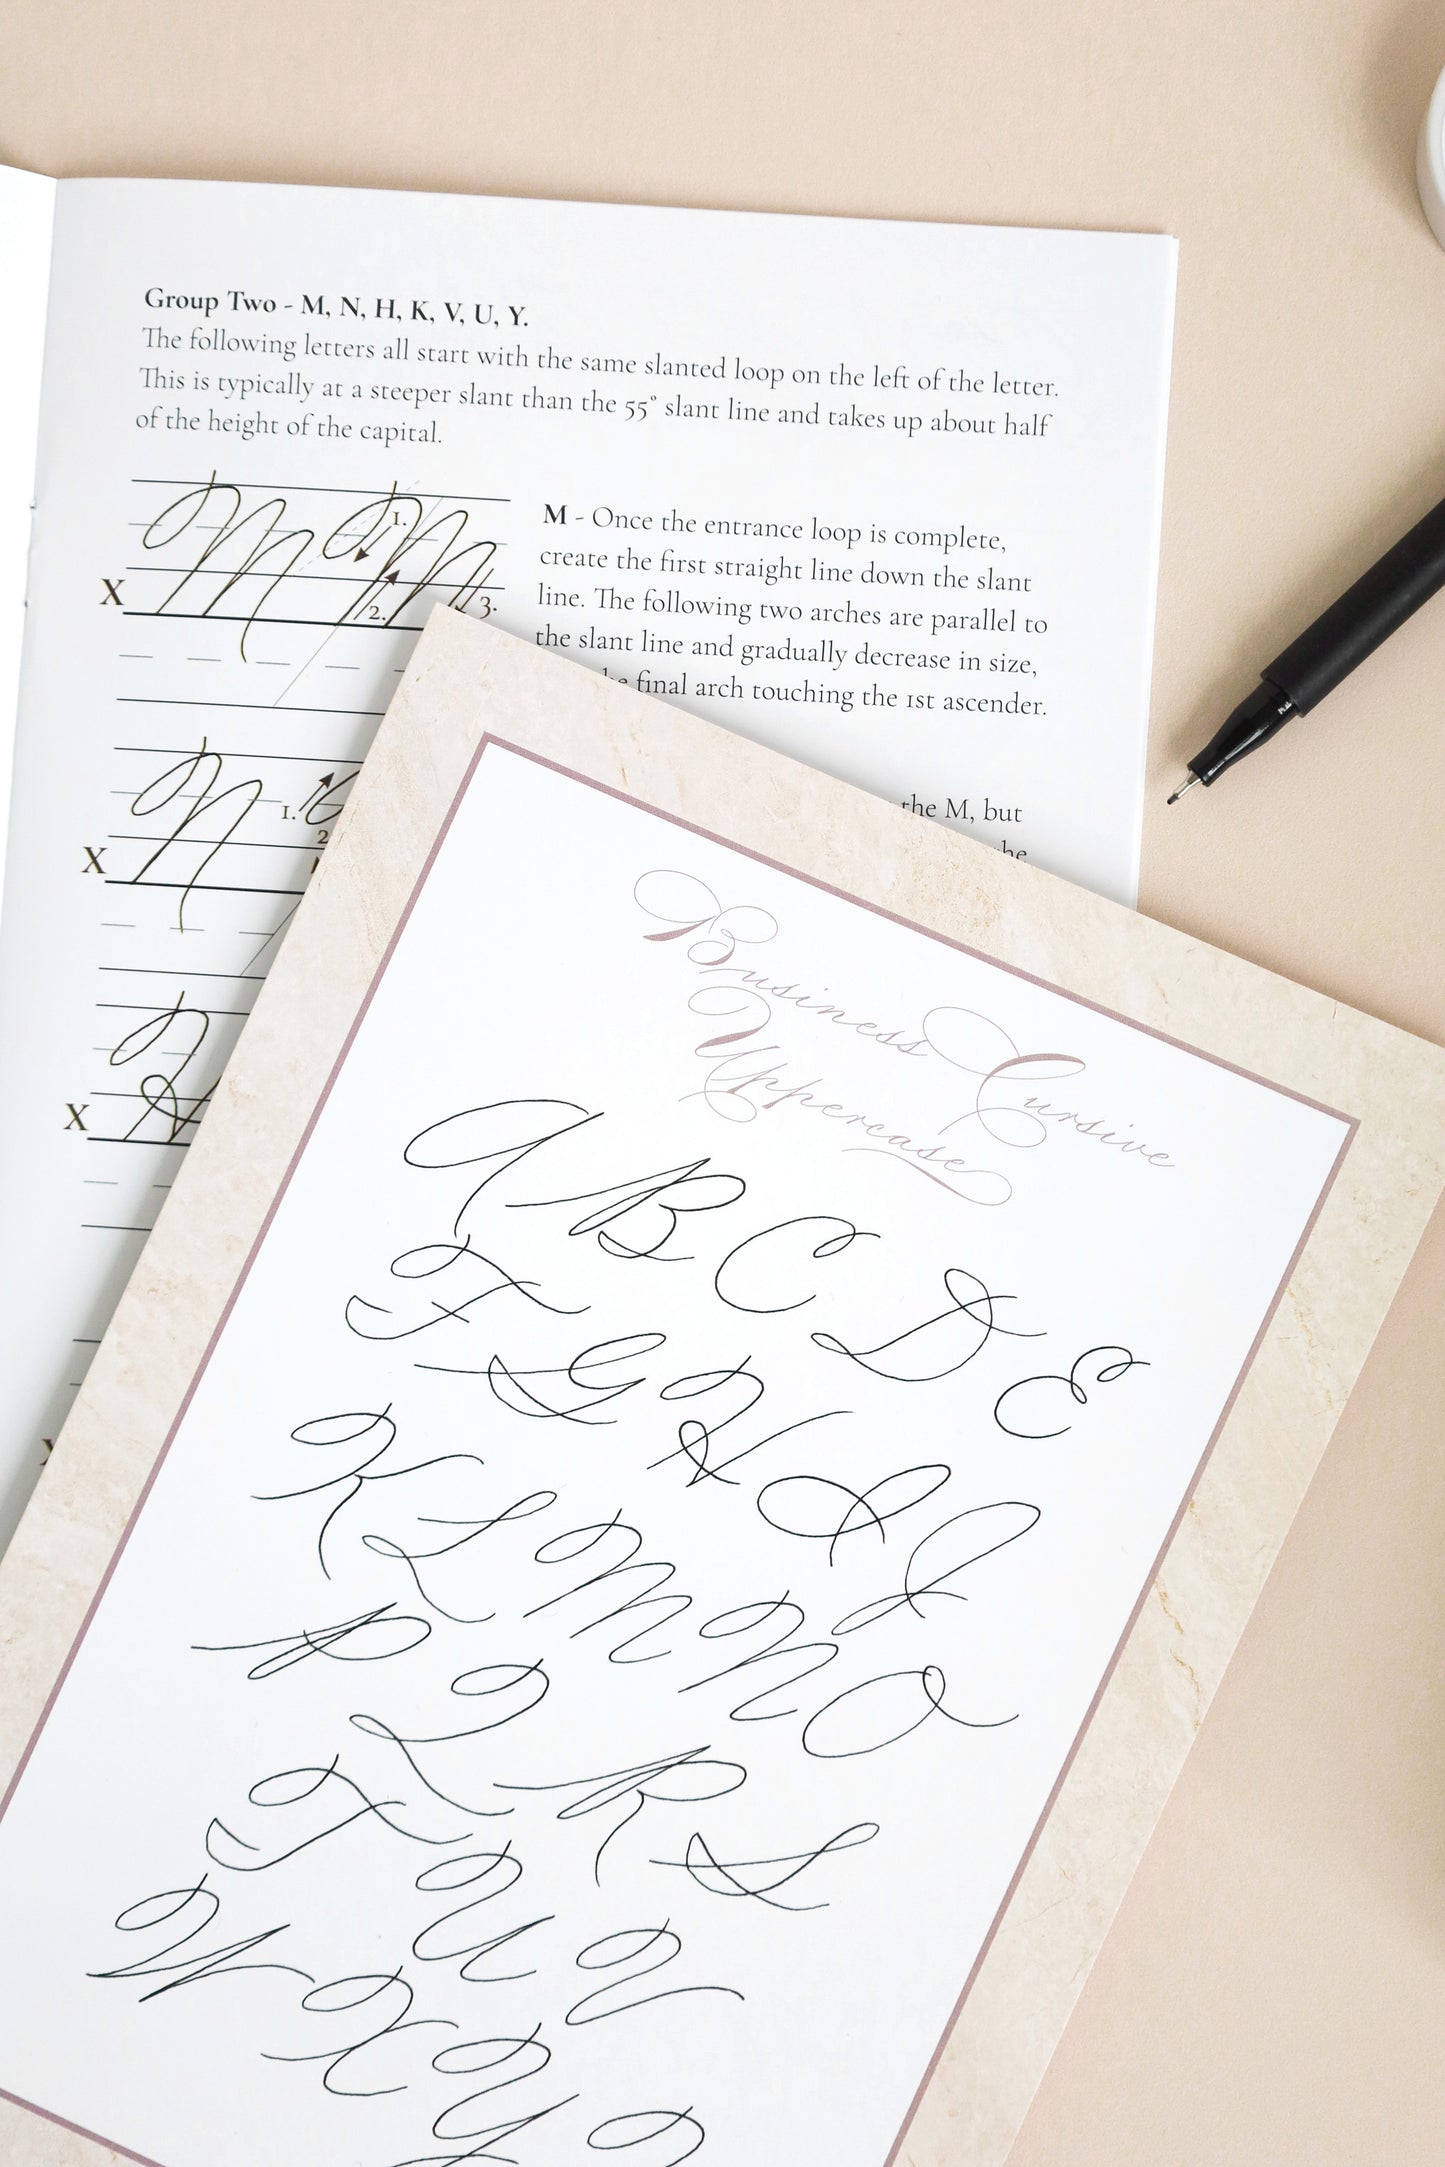 Group Two - M, N, H, K, V, U, Y.
The following letters all start with the same slanted loop on the left of the letter.
This is typically at a steeper slant than the 55° slant line and takes up about half
of the height of the capital.
M - Once the entrance loop is complete,
create the first straight line down the slant
line. The following two arches are parallel to
the slant line and gradually decrease in size,
final arch touching the 1st ascender.
the M, but
M M
1.
2.
3.
X
N
1.
2
X
H
X
Business Cursive
Uppercase
A B C D E
F G H I J
K L M N O
P Q R S
T U V
W X Y Z